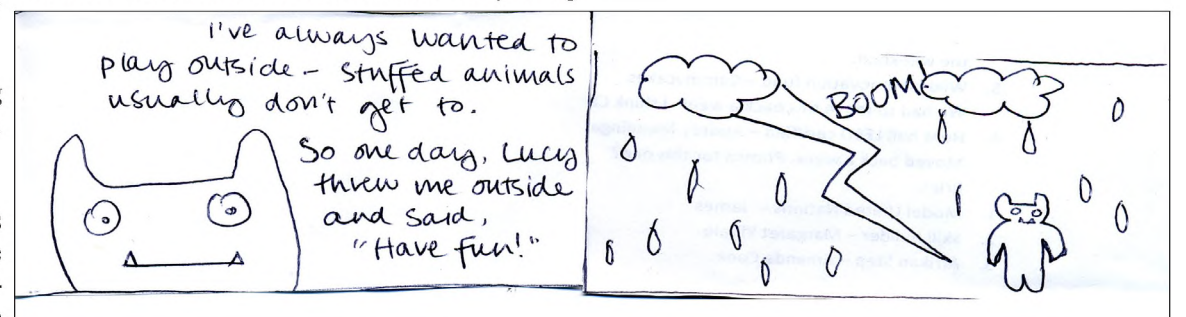 i've always wanted to
play outside - stuffed animals
usually don't get to.
So one day, Lucy
threw me outside
and said,
"Have fun!"
BOOM!